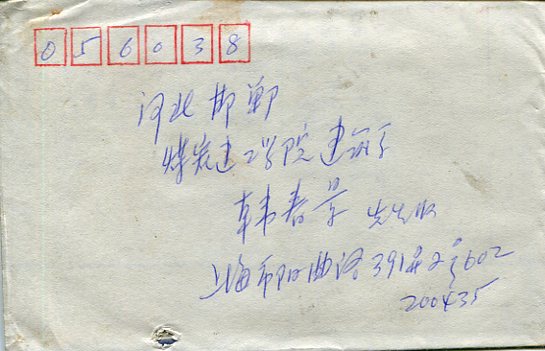 056038
河北邯郸
煤炭建工学院建筑系
韩春 先生收
上海市阳曲路391弄2号602
200435